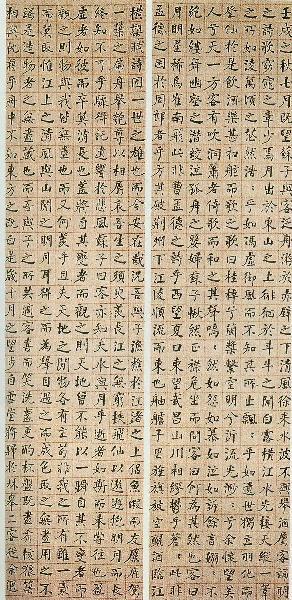 壬戌之秋七月既望蘇子與客泛舟遊於赤壁之下清風徐來水波不興舉酒屬客誦明月
之詩歌窈窕之章少焉月出於東山之上徘徊於斗牛之間白露橫江水光接天縱一葦
之所如凌萬頃之茫然浩浩乎如馮虛御風而不知其所止飄飄乎如遺世獨立羽化而
登仙於是飲酒樂甚扣舷而歌之歌曰桂棹兮蘭槳擊空明兮泝流光渺渺兮予懷望美
人兮天一方客有吹洞簫者倚歌而和之其聲嗚嗚然如怨如慕如泣如訴餘音嫋嫋不
絕如縷舞幽壑之潛蛟泣孤舟之嫠婦蘇子愀然正襟危坐而問客曰何為其然也客曰
月明星稀烏鵲南飛此非曹孟德之詩乎西望夏口東望武昌山川相繆鬱乎蒼蒼此非
孟德之困於周郎者乎方其破荊州下江陵順流而東也舳艫千里旌旗蔽空釃酒臨江
橫槊賦詩固一世之雄也而今安在哉況吾與子漁樵於江渚之上侶魚蝦而友麋鹿駕
一葉之扁舟舉匏尊以相屬哀吾生之須臾羨長江之無窮挾飛仙以遨遊抱明月而長
終知不可乎驟得託遺響於悲風蘇子曰客亦知夫水與月乎逝者如斯而未嘗往也盈
虛者如彼而卒莫消長也蓋將自其變者而觀之則天地曾不能以一瞬自其不變者而
觀之則物與我皆無盡也而又何羨乎且夫天地之間物各有主苟非吾之所有雖一毫
而莫取惟江上之清風與山間之明月耳得之而為聲目遇之而成色取之無禁用之不
竭是造物者之無盡藏也而吾與子之所共食客喜而笑洗盞更酌肴核既盡杯盤狼藉
相與枕藉乎舟中不知東方之既白是歲十月之望步自雪堂將歸於臨皋二客從余過